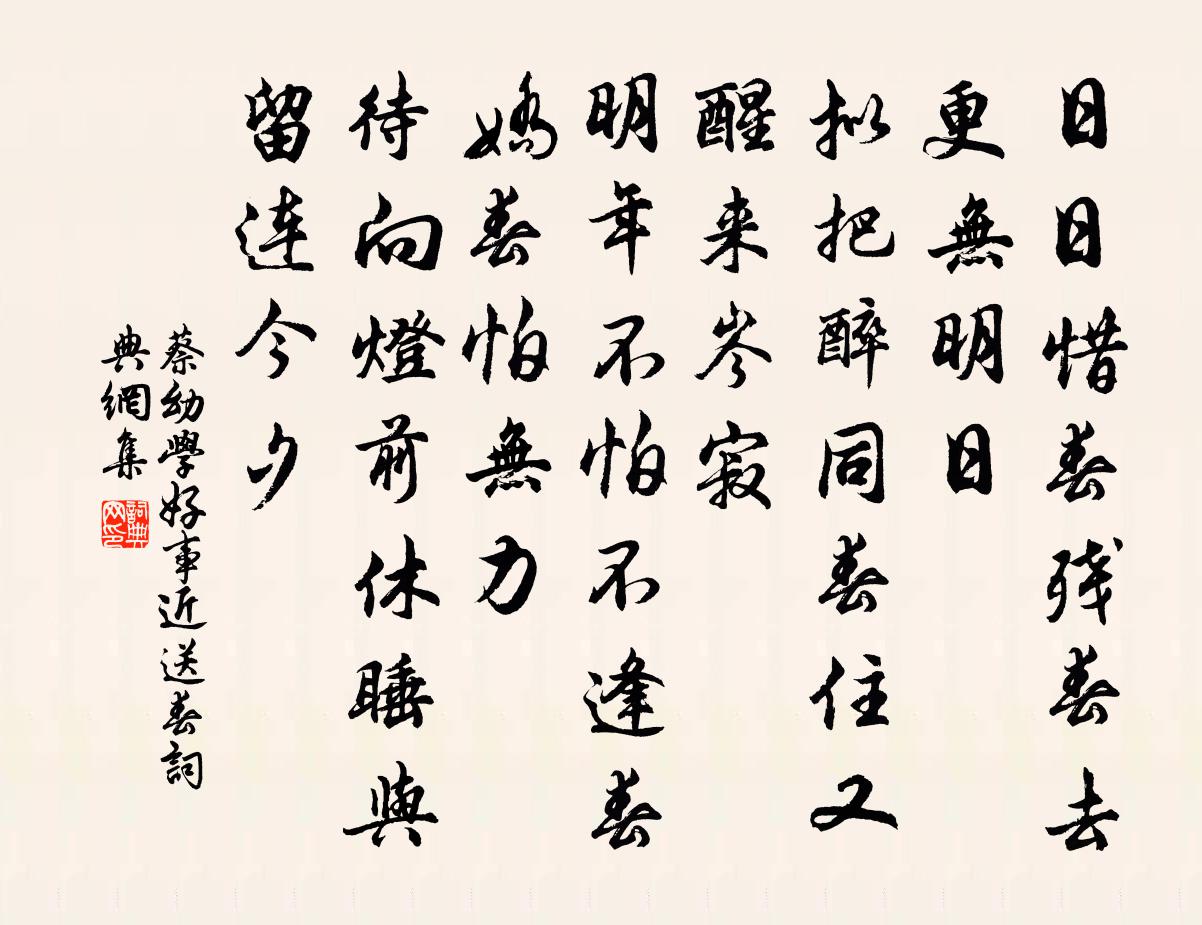 日日惜春残春去
更無明日
拟把醉同春住又
醒来岑寂
明年不怕不逢春
嬌春怕無力
待向燈前休睡與
留連今夕
蔡幼學好事近送春詞
典網集
詞典网印